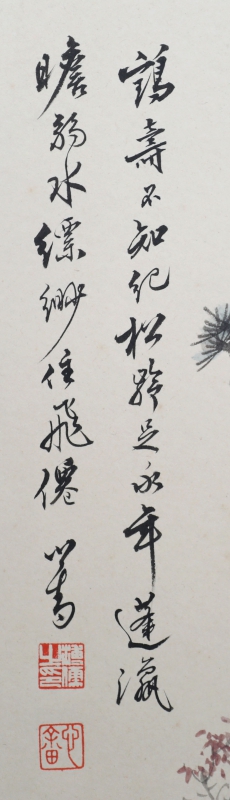 鶴壽不知紀松齡足永年蓬瀛
瞻弱水縹緲住飛僊 心畬
心畬